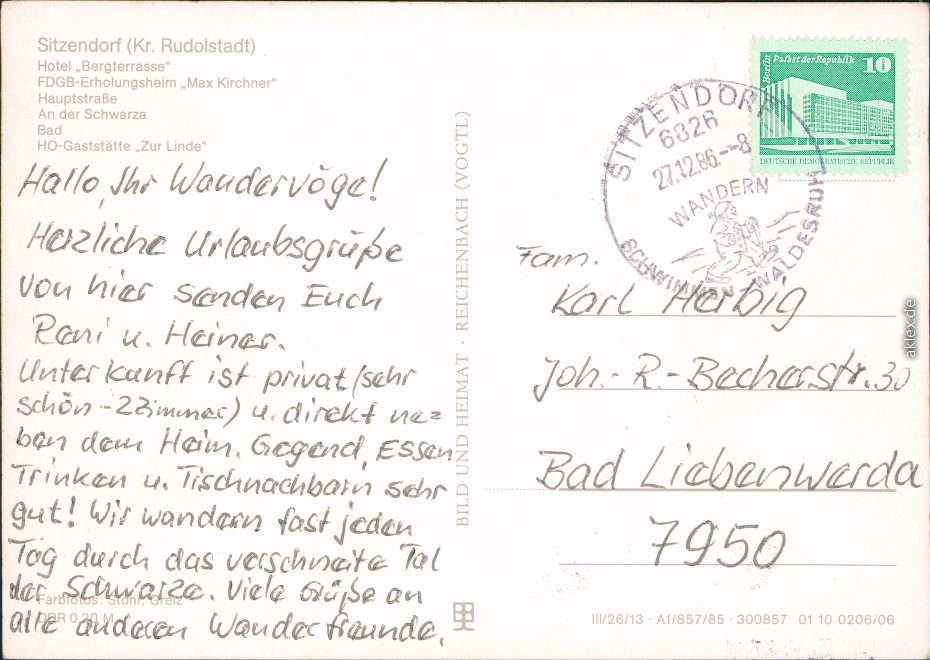 Sitzendorf (Kr. Rudolstadt)
Hotel „Bergterrasse“
FDGB-Erholungsheim „Max Kirchner“
Hauptstraße
An der Schwarza
Bad
HO-Gaststätte „Zur Linde“
Hallo, Ihr Wandervöge!
Herzliche Urlaubsgrüße
von hier senden Euch
Reni u. Heiner.
Unterkunft ist privat (sehr
schön - 2 Zimmer) u. direkt ne=
ben dem Heim. Gegend, Essen
Trinken u. Tischnachbarn sehr
gut! Wir wandern fast jeden
Tag durch das verschneite Tal
der Schwarza. Viele Grüße an
alle anderen Wanderfreunde.
Farbfotos: Stöhr, Greiz
DDR 0,20 M
BILD UND HEIMAT · REICHENBACH (VOGTL)
Berlin Palast der Republik 10
DEUTSCHE DEMOKRATISCHE REPUBLIK
SITZENDORF
6826
27.12.86.--8
WANDERN
SCHWIMMEN WALDESRUH
Fam.
Karl Herbig
Joh.-R.-Becherstr. 30
Bad Liebenwerda
7950
III/26/13 · A1/857/85 · 300857 01 10 0206/06
aklex.de